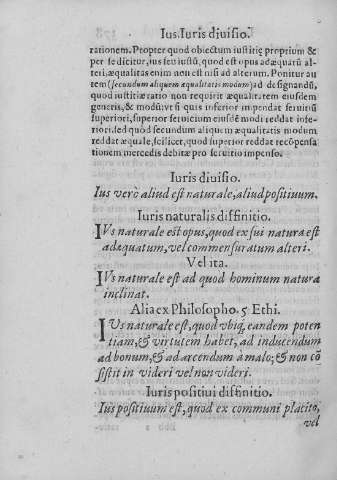 Ius. Iuris diuisio.
rationem. Propter quod obiectum iustitię proprium &
per se dicitur, ius seu iustũ, quod est opus adæquatũ al-
teri, æqualitas enim non est nisi ad alterum. Ponitur au
tem (secundum aliquem æqualitatis modum) ad designandũ,
quod iustitiæ ratio non requirit æqualitatem eiusdem
generis, & modi: vt si quis inferior impendat seruitiũ
superiori, superior seruicium eiusdẽ modi reddat infe-
riori, sed quòd secundum aliquem æqualitatis modum
reddat æquale, scilicet, quod superior reddat recõpensa
tionem mercedis debitæ pro seruitio impenso.
Iuris diuisio.
Ius verò aliud est naturale, aliud positiuum.
Iuris naturalis diffinitio.
IVs naturale est opus, quod ex sui natura est
adæquatum, vel commensuratum alteri.
Vel ita.
IVs naturale est ad quod hominum natura
inclinat.
Alia ex Philosopho. 5 Ethi.
IVs naturale est, quod vbiq; eandem poten
tiam, & virtutem habet, ad inducendum
ad bonum, & ad arcendum à malo; & non cõ
sistit in videri vel non videri.
Iuris positiui diffinitio.
Ius positiuum est, quod ex communi placito,
vel